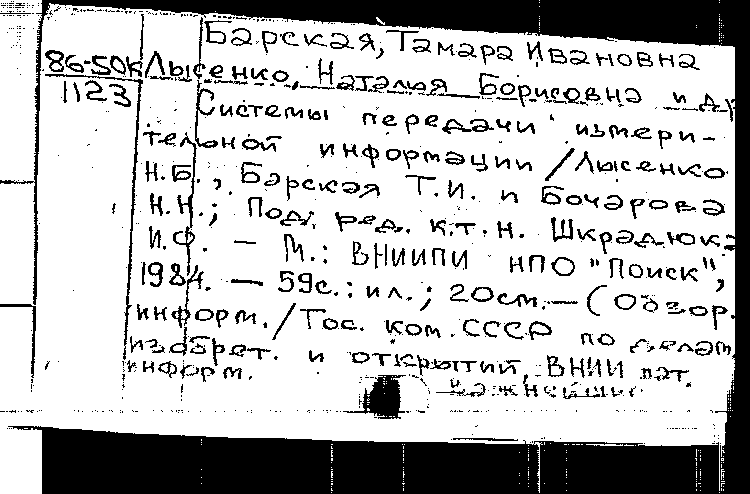 Барская, Тамара Ивановна
86-50к Лысенко, Наталья Борисовна и др
1123 Системы передачи измери-
тельной информации / Лысенко
Н.Б., Барская Т.И. и Бочарова
Н.Н.; Под. ред. к.т.н. Шкрадюка
И.Ф. — М.: ВНИИПИ НПО "Поиск",
1984. — 59с.: ил.; 20см. — (Обзор.
информ. / Гос. ком. СССР по делам
изобрет. и открытий, ВНИИ пат.
информ.